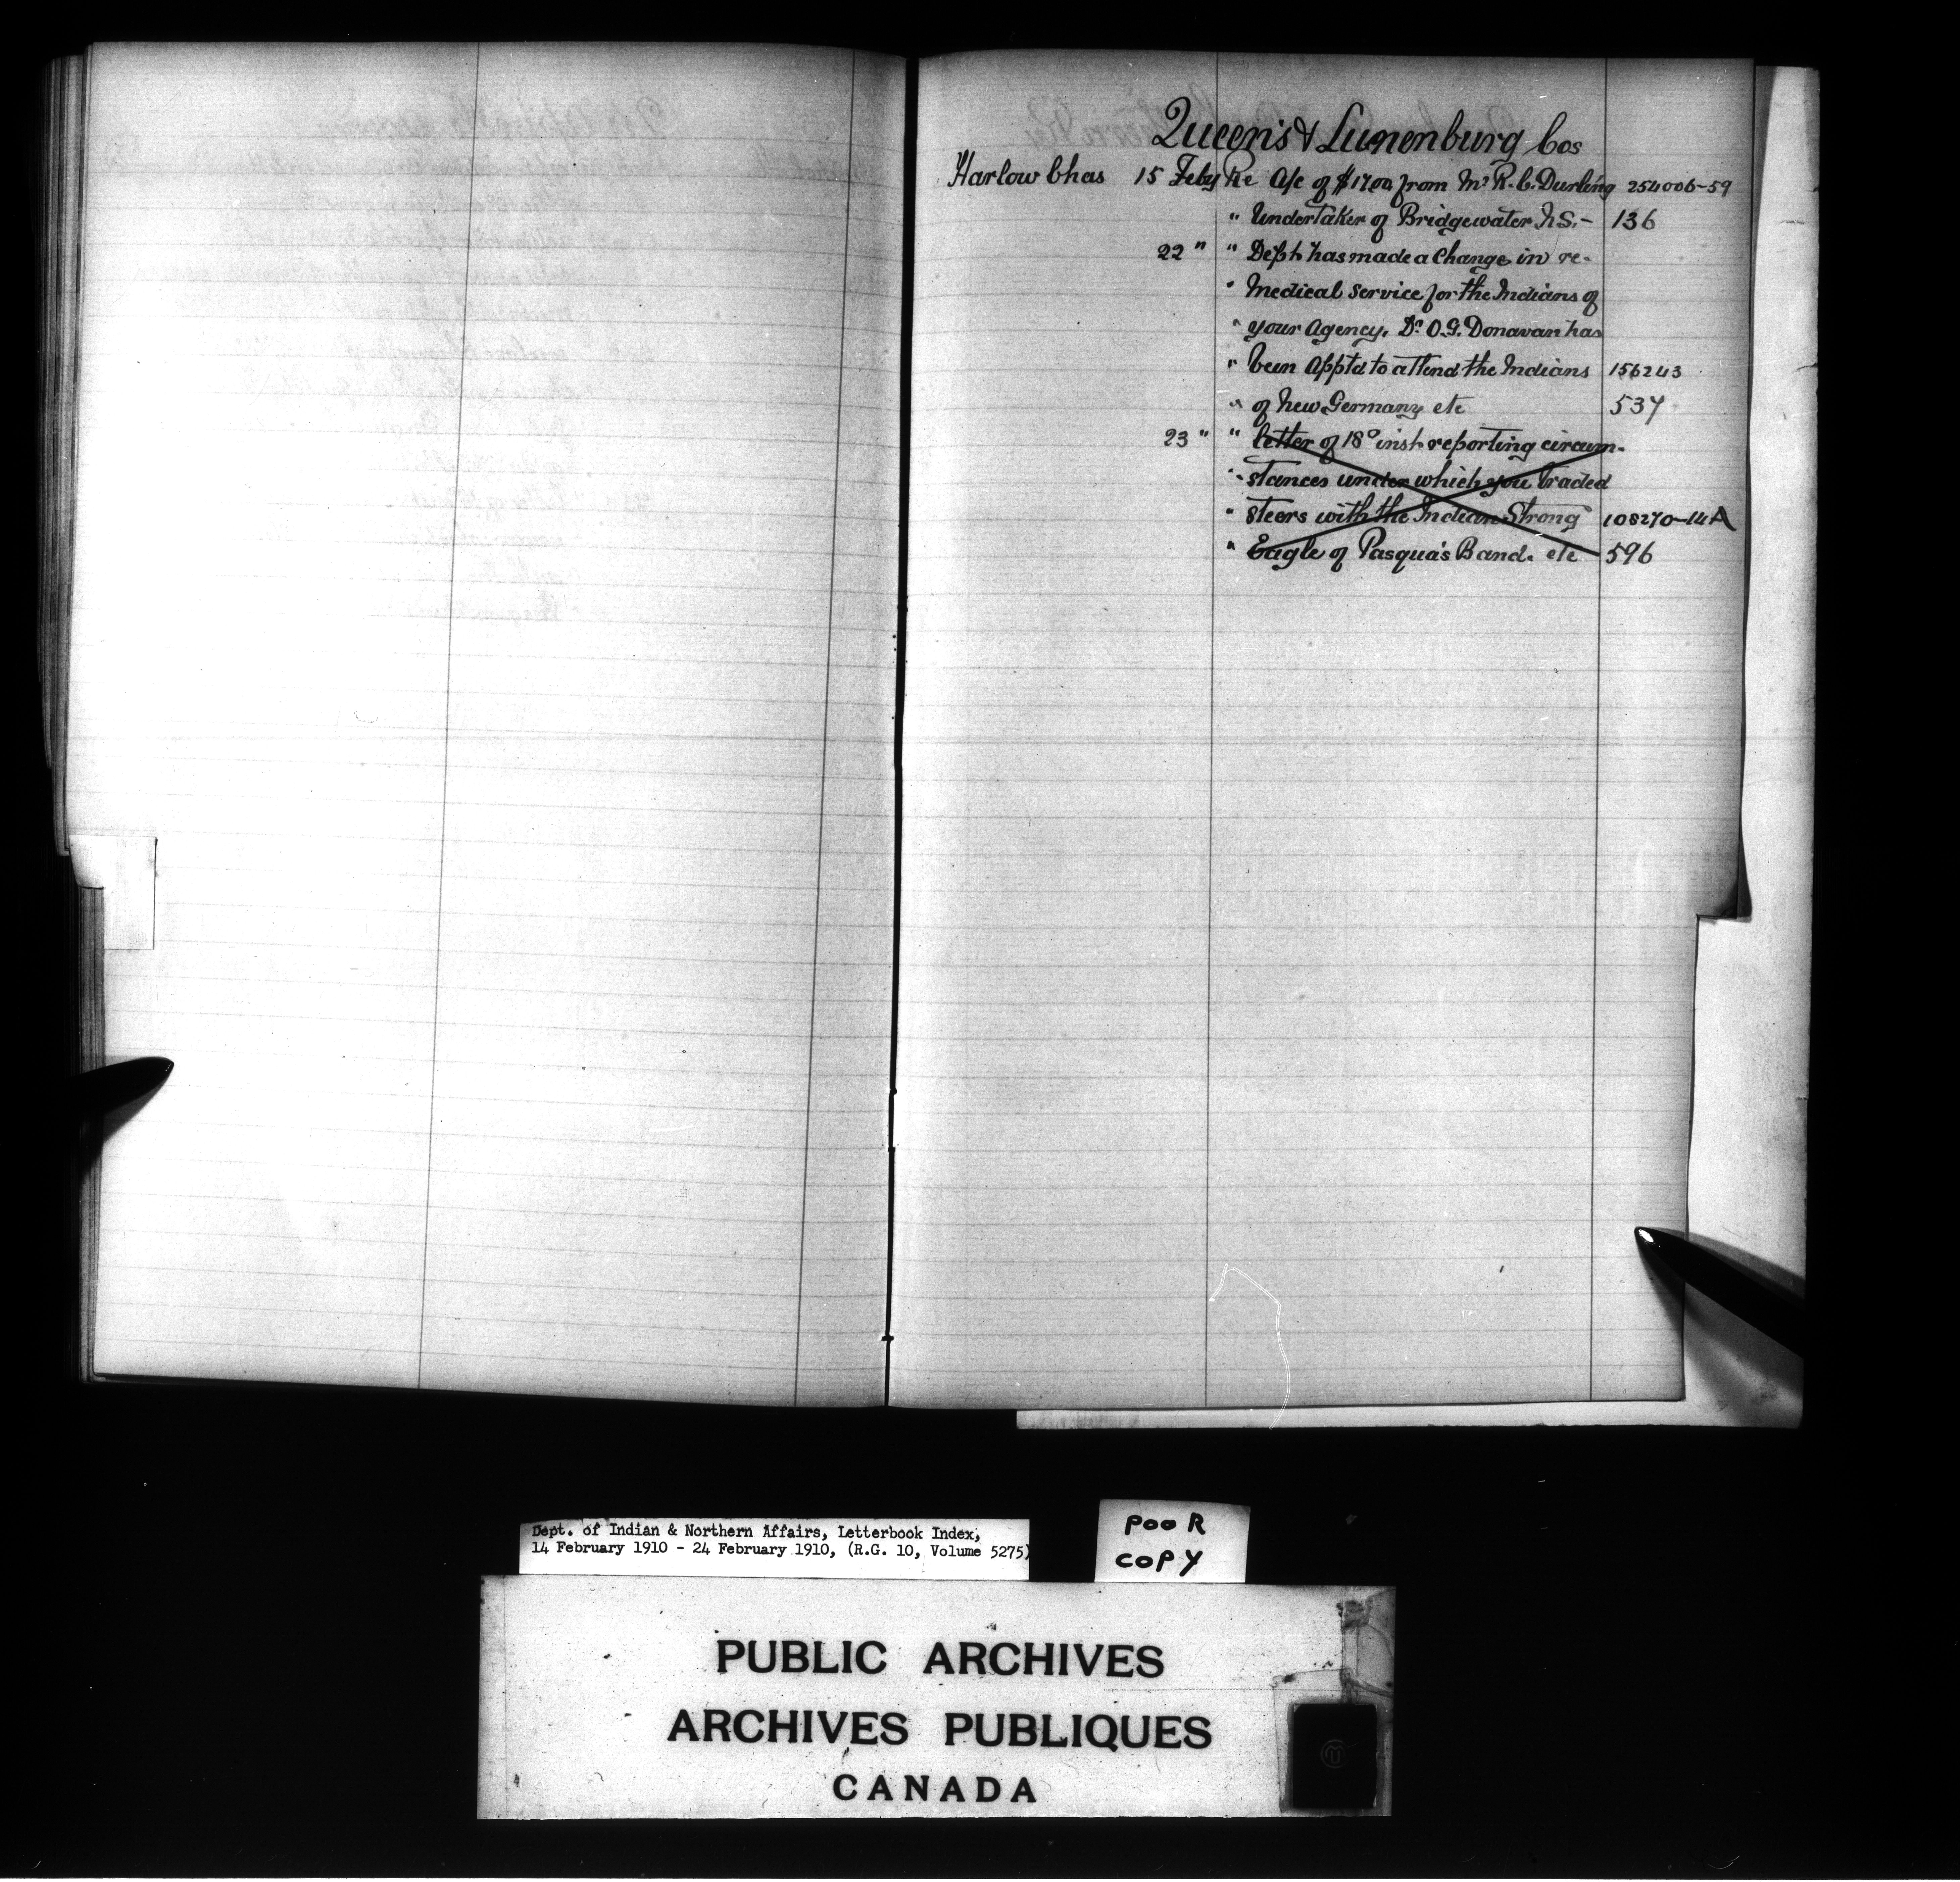 Queen's & Lunenburg Cos
Harlow Chas 15 Feby Re a/c of $17.00 from Mr R. C. Durling 254006-59
" Undertaker of Bridgewater N.S. - 136
22 " " Dept. has made a change in re-
" Medical Service for the Indians of
" your agency. Dr O.G. Donavan has
" been apptd to attend the Indians 156243
" of New Germany etc 537
23 " " letter of 18° inst. reporting circum-
" stances under which you traded
" steers with the Indian Strong 108270-14A
" Eagle of Pasqua's Band. etc 596
Dept. of Indian & Northern Affairs, Letterbook Index,
14 February 1910 - 24 February 1910, (R.G. 10, Volume 5275)
POOR
COPY
PUBLIC ARCHIVES
ARCHIVES PUBLIQUES
CANADA